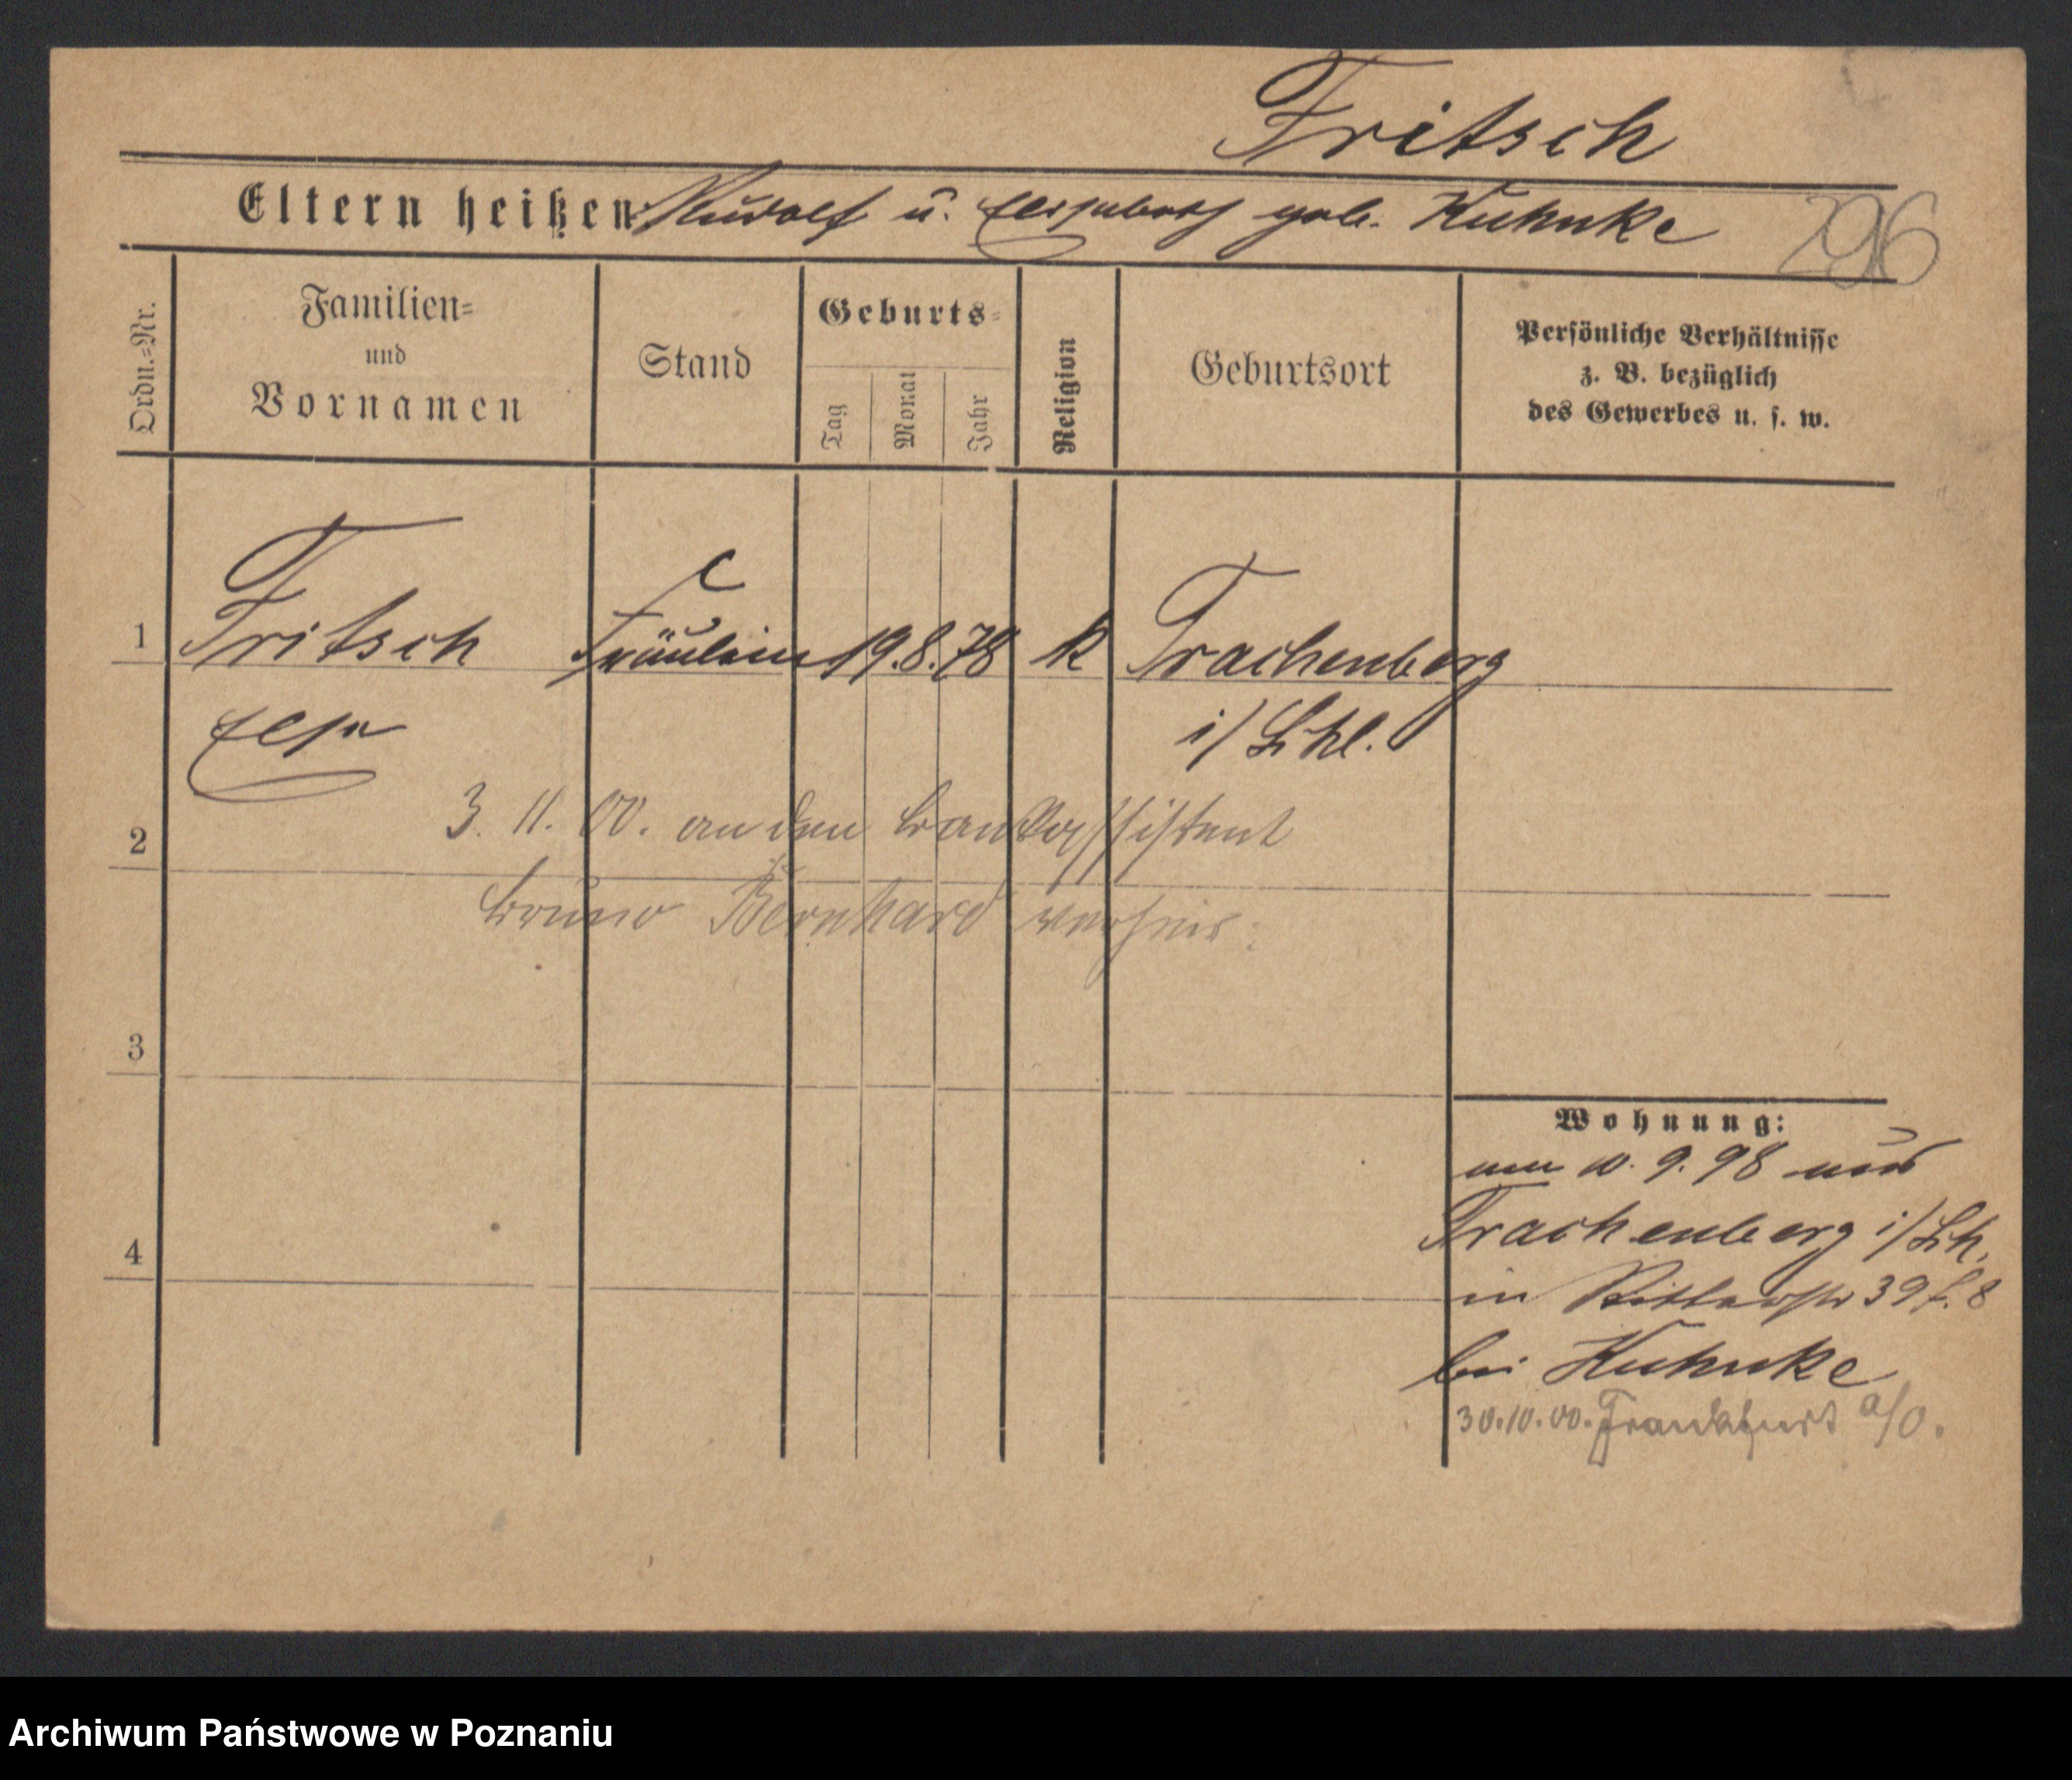 Fritsch
Eltern heißen: Rudolf u. Elisabeth geb. Kuhnke
296
Ordn.=Nr.
Familien=
und
Vornamen
Stand
Geburts=
Tag
Monat
Jahr
Religion
Geburtsort
Persönliche Verhältnisse
z. B. bezüglich
des Gewerbes u. s. w.
1 Fritsch Fräulein 19.8.78 k Trachenberg
Else i/Schl.
2 3. 11. 00. an den Bankassistent
Bruno Bernhard verheir.
3
Wohnung:
10. 9. 98 aus
Trachenberg i/Sch.
4
in Ritterstr 39 8
bei Kuhnke
30.10.00. Frankfurt a/O.
Archiwum Państwowe w Poznaniu